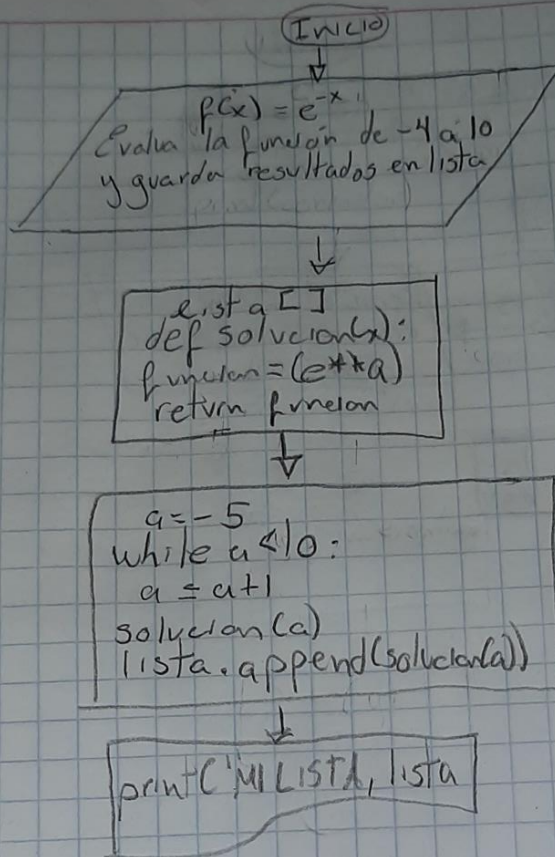 Inicio
f(x) = e^-x
Evalua la función de -4 a 10
y guarda resultados en lista
lista []
def solucion(x):
funcion=(e**a)
return funcion
a=-5
while a<10:
a = a+1
solucion(a)
lista.append(solucion(a))
print('MI LISTA, lista